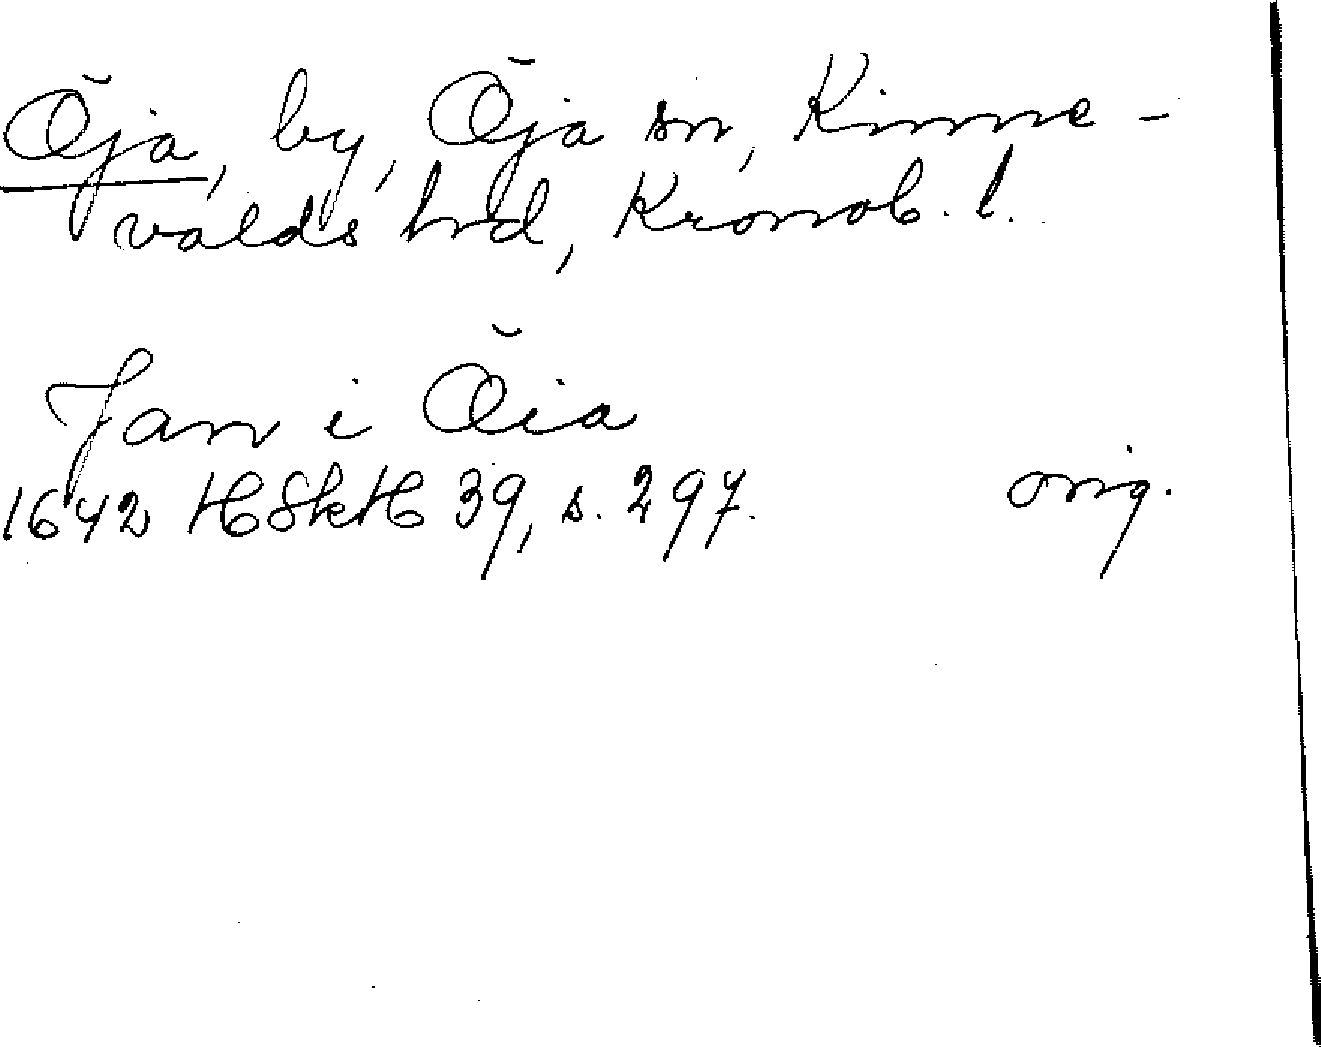 Öja, by, Öja sn, Kinne-
valds hrd, Kronob. l.
Jan i Öia
1642 HSkH 39, s. 297. orig.